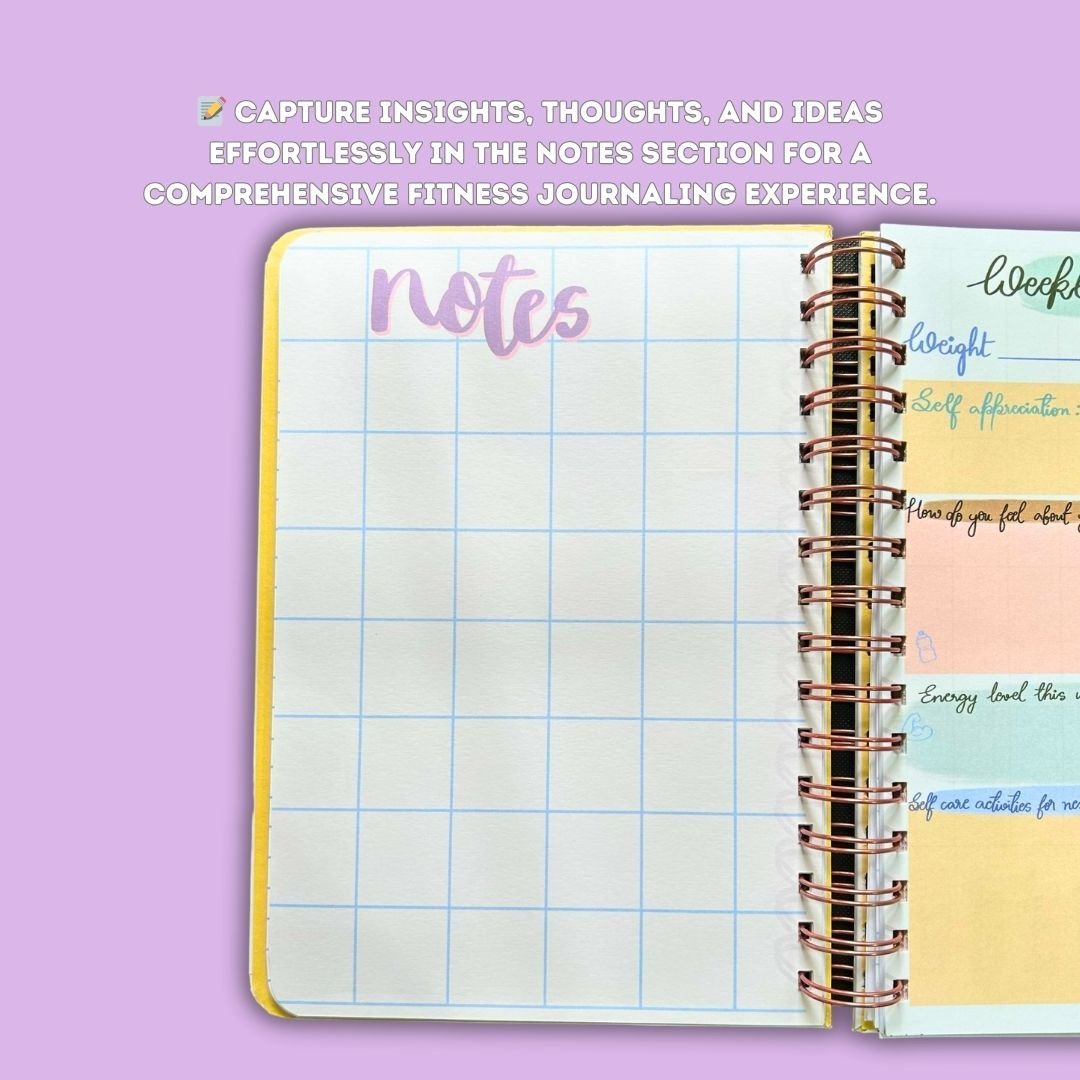 📝 CAPTURE INSIGHTS, THOUGHTS, AND IDEAS
EFFORTLESSLY IN THE NOTES SECTION FOR A
COMPREHENSIVE FITNESS JOURNALING EXPERIENCE.
notes
Weight
Self appreciation:
How do you feel about
Energy level this
Self care activities for